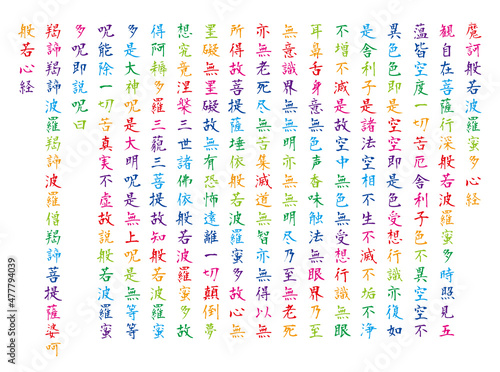 摩訶般若波羅蜜多心経
観自在菩薩行深般若波羅蜜多時照見五
蘊皆空度一切苦厄舎利子色不異空空不
異色色即是空空即是色受想行識亦復如
是舎利子是諸法空相不生不滅不垢不浄
不増不減是故空中無色無受想行識無眼
耳鼻舌身意無色声香味触法無眼界乃至
無意識界無無明亦無無明尽乃至無老死
亦無老死尽無苦集滅道無智亦無得以無
所得故菩提薩埵依般若波羅蜜多故心無
罣礙無罣礙故無有恐怖遠離一切顛倒夢
想究竟涅槃三世諸佛依般若波羅蜜多故
得阿耨多羅三藐三菩提故知般若波羅蜜
多是大神呪是大明呪是無上呪是無等等
呪能除一切苦真実不虚故説般若波羅蜜
多呪即説呪曰
羯諦羯諦波羅羯諦波羅僧羯諦菩提薩婆訶
般若心経
Adobe Stock | #477794039